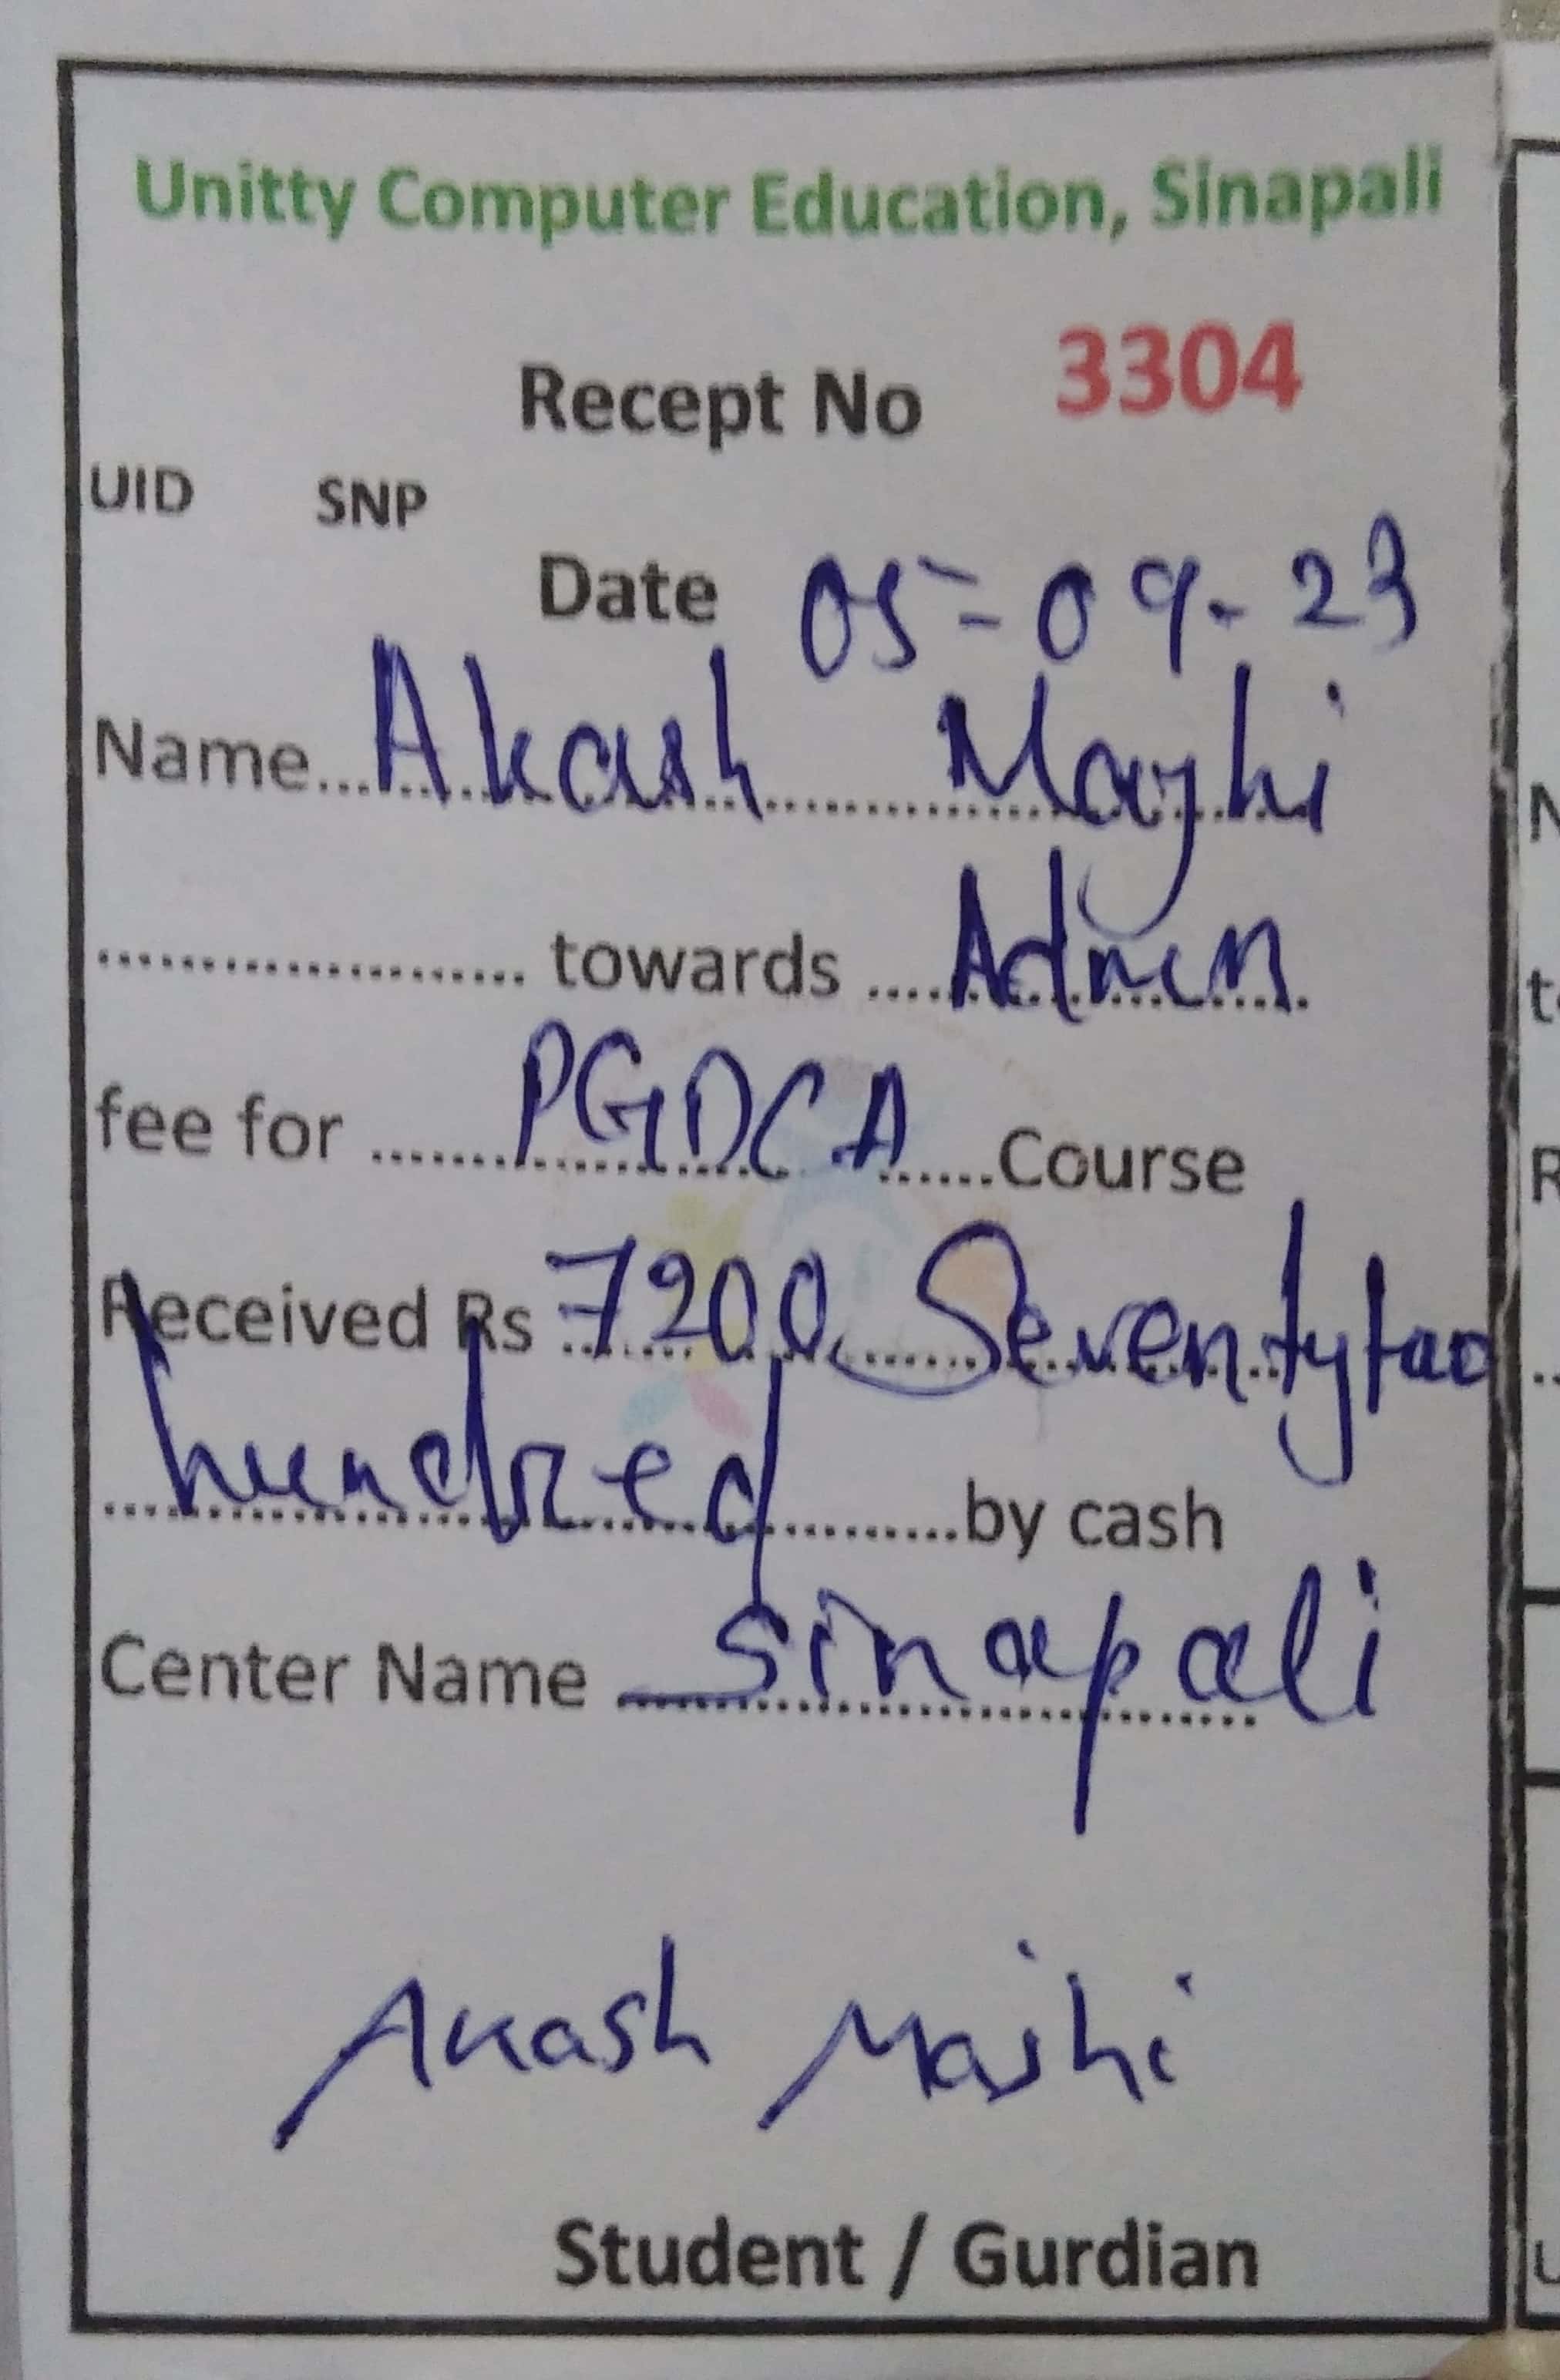 Unitty Computer Education, Sinapali
Recept No 3304
UID SNP
Date 05-09-23
Name... Akash Majhi
.................... towards .... Admn
fee for ...... PGDCA ......Course
Received Rs 7200 Seventytwo
hundred ..........by cash
Center Name Sinapali
Akash Majhi
Student / Gurdian